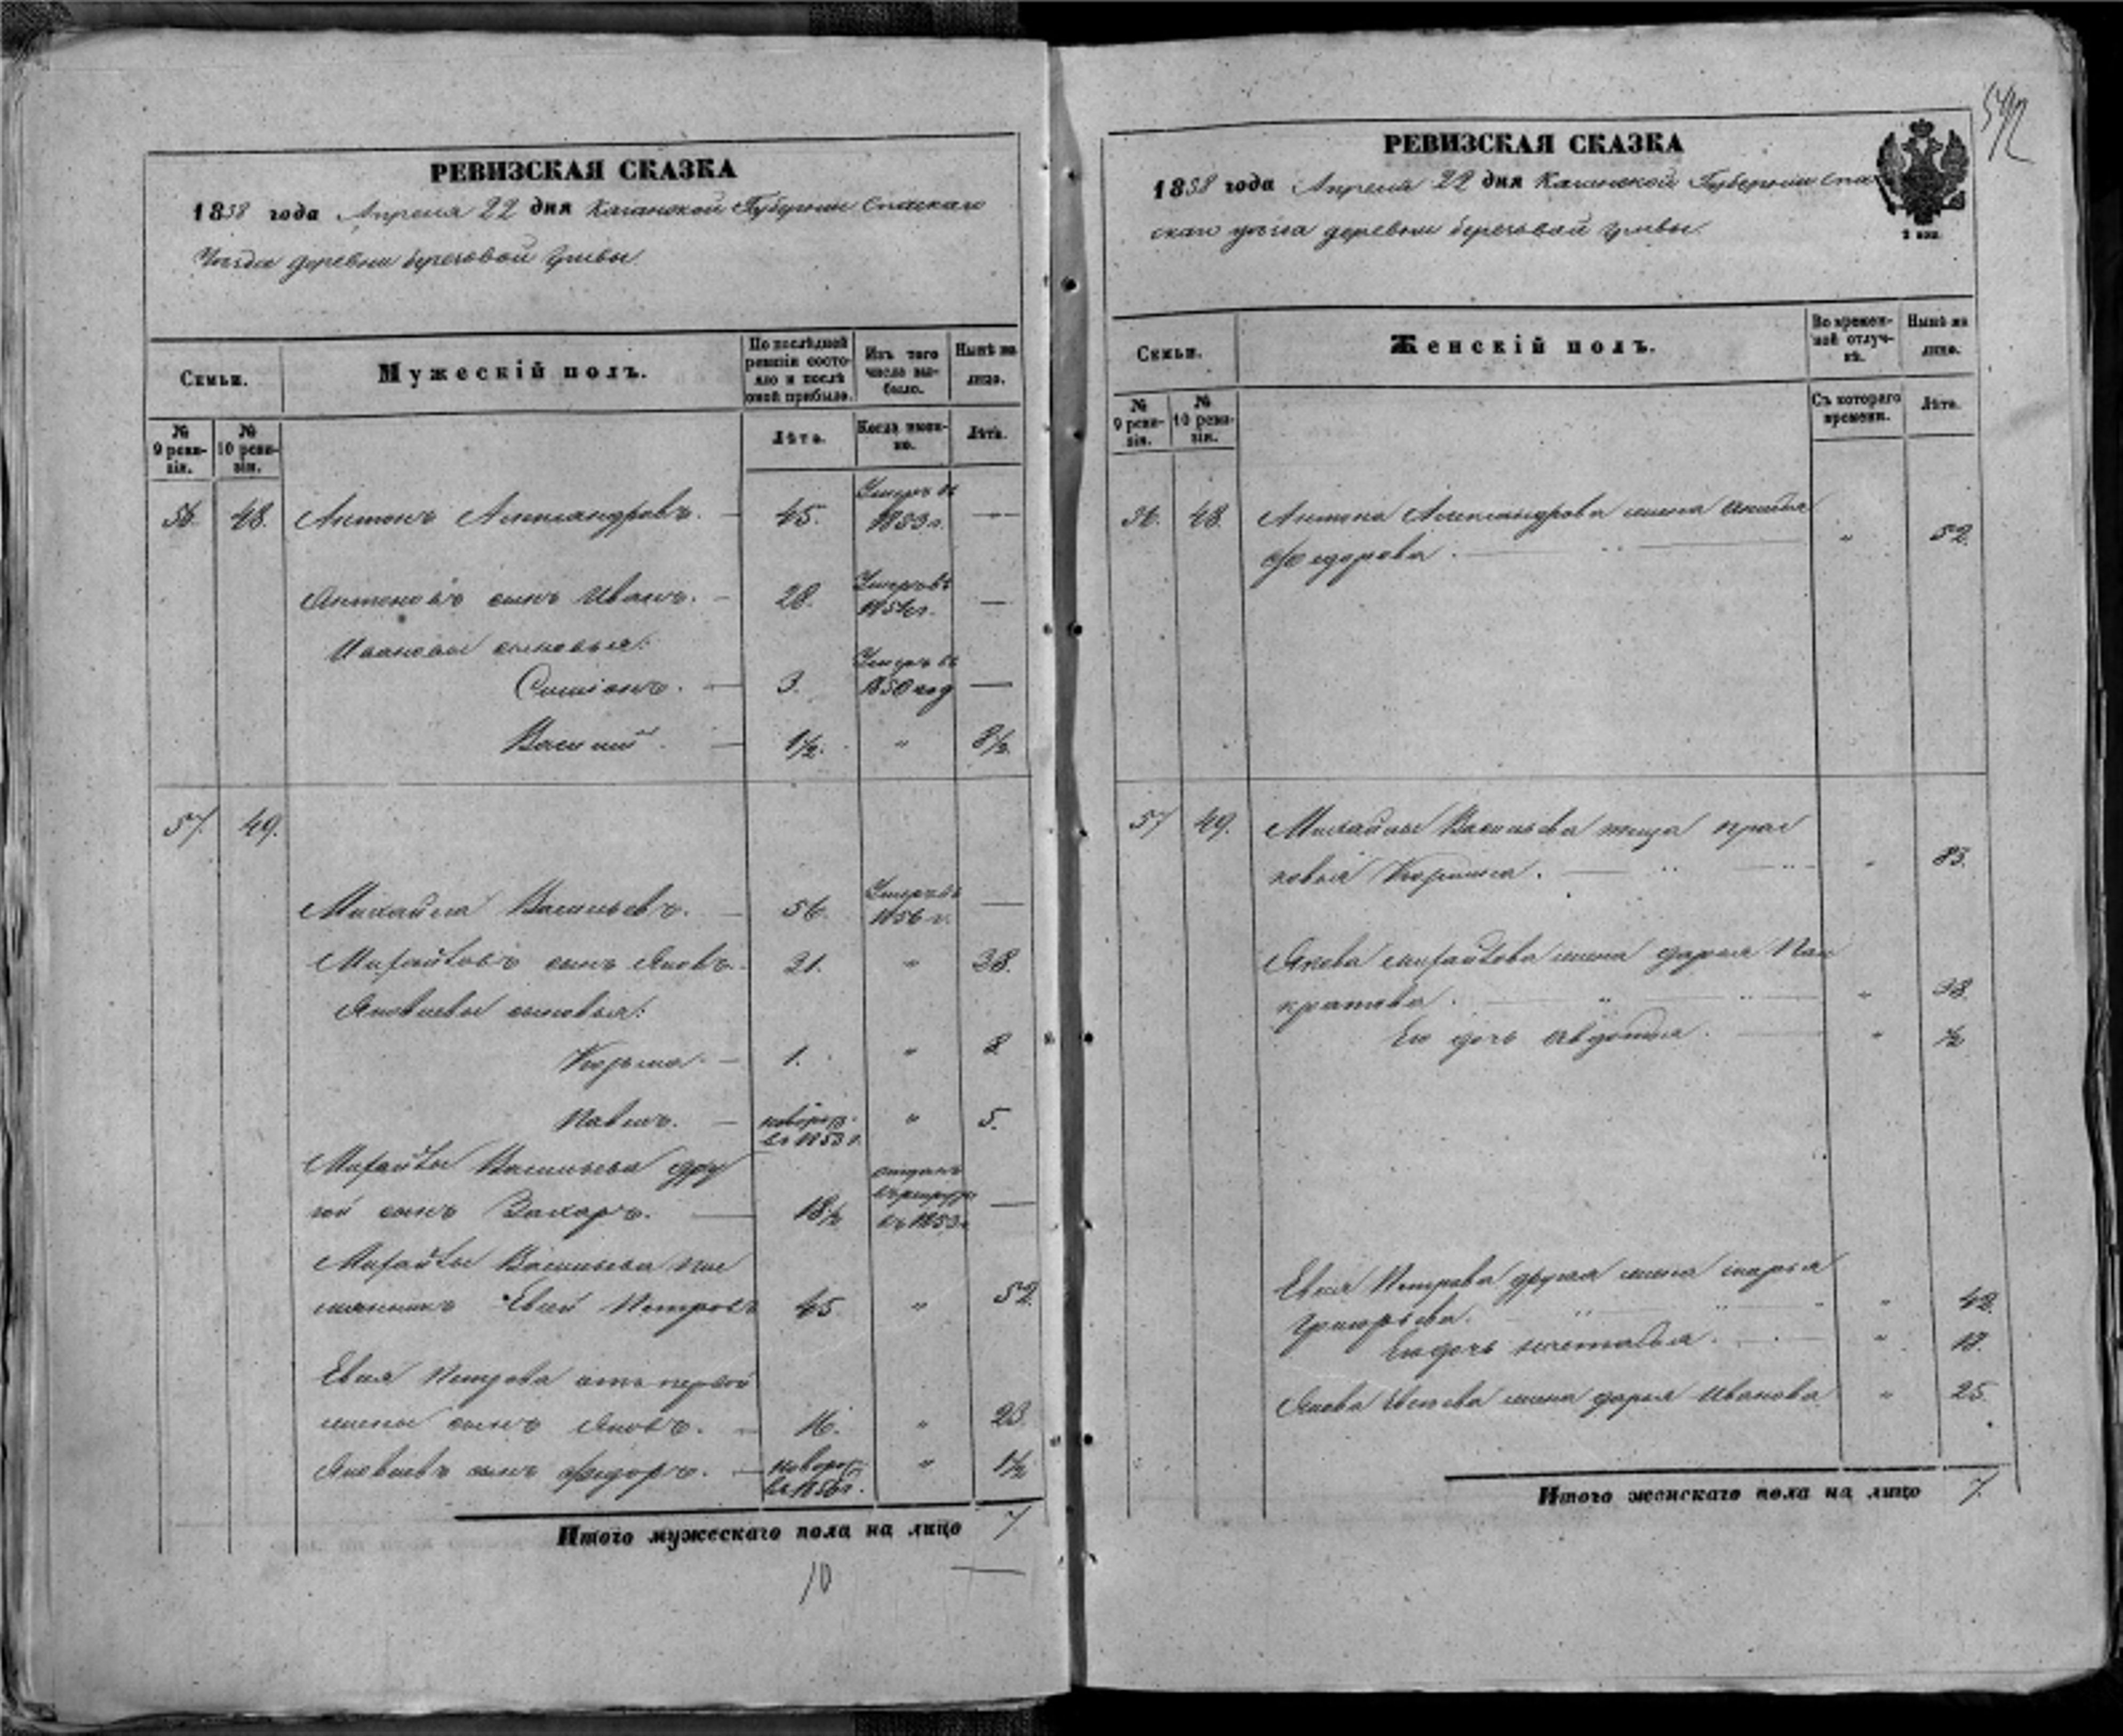 592
РЕВИЗСКАЯ СКАЗКА
1858 года Апреля 22 дня Казанской Губернии Спаскаго
Уезда деревни березовой гривы.
Семьи.
Мужескій полъ.
По послѣдней ревизіи состояло и послѣ оной прибыло.
Изъ того числа выбыло.
Нынѣ на лицо.
№ 9 ревизіи.
№ 10 ревизіи.
Лѣта.
Когда именно.
Лѣта.
56. 48. Антонъ Александровъ. — 45. Умеръ въ 1853 г. —
Антоновъ сынъ Иванъ. — 28. Умеръ въ —
Ивановы сыновья:
Симіонъ. — 3. Умеръ въ 1850 год —
Василій. — 1½. " 8½.
57. 49.
Михайла Васильевъ. — 56. Умеръ въ 1856 г. —
Михайловъ сынъ Яковъ. 31. " 38.
Яковлевы сыновья:
Козьма. — 1. " 8
Павелъ. — новорож. въ 1853 г. " 5.
Михайлы Васильева дру
гой сынъ Захаръ. — 18½ отданъ въ рекруты въ 1853 г. —
Михайлы Васильева пле
мянникъ Евсей Петровъ 45. " 52.
Евсея Петрова отъ первой
жены сынъ Яковъ. — 16. " 23
Яковлевъ сынъ Федоръ. — новорож. въ 1856 г. " 1½
Итого мужескаго пола на лицо 7
10
РЕВИЗСКАЯ СКАЗКА
1858 года Апреля 22 дня Казанской Губернии Спа
скаго уезда деревни березовой гривы.
2 коп.
Семьи.
Женскій полъ.
Во временной отлучкѣ.
Нынѣ на лицо.
№ 9 ревизіи.
№ 10 ревизіи.
Съ котораго времени.
Лѣта.
56. 48. Антона Александрова жена
Федорова. — " 52.
57 49. Михайлы Васильева теща прас
ковья — " 83.
Якова михайлова жена дарья Пан
кратова. — " 38.
Его дочь авдотья. — " ½
Евсея Петрова другая жена марья
Григорьева. — " 42.
Его дочь — " 18.
Якова Евсеева жена дарья Иванова " 25.
Итого женскаго пола на лицо 7.